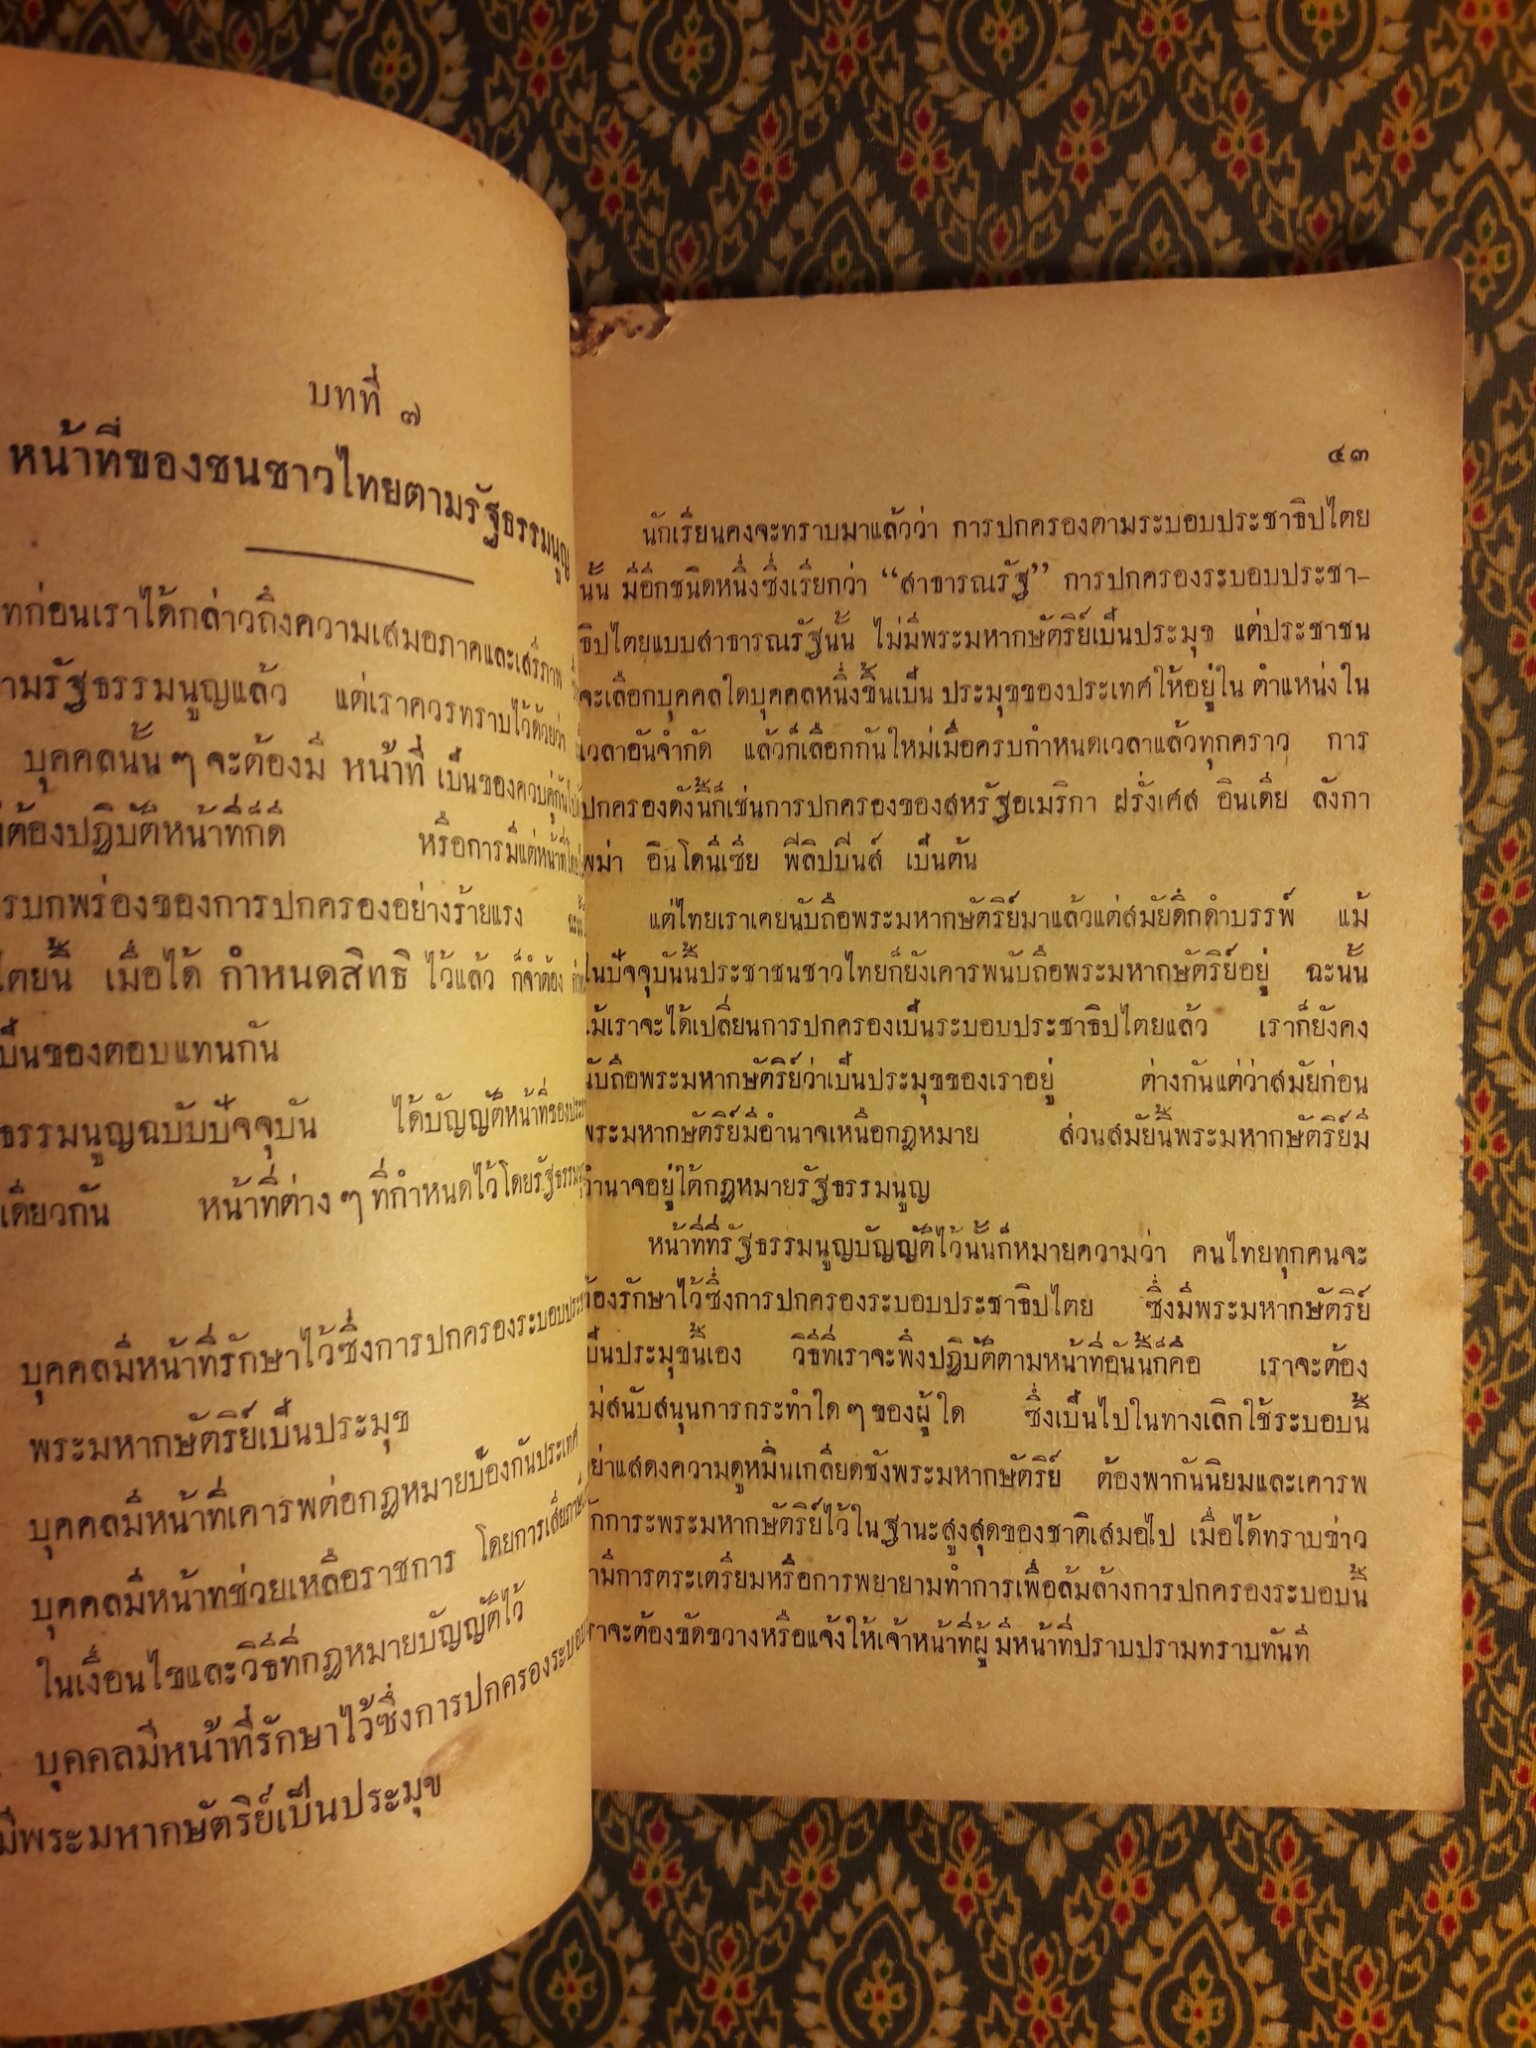 บทที่ ๗
หน้าที่ของชนชาวไทยตามรัฐธรรมนูญ
ก่อนเราได้กล่าวถึงความเสมอภาคและเสรีภาพ
ามรัฐธรรมนูญแล้ว แต่เราควรทราบไว้ด้วยว่า
บุคคลนั้น ๆ จะต้องมี หน้าที่ เป็นของควบคู่กัน
ต้องปฏิบัติหน้าที่ก็ดี หรือการมีแต่หน้าที่
บกพร่องของการปกครองอย่างร้ายแรง
นี้ เมื่อได้ กำหนดสิทธิ ไว้แล้ว ก็จำต้อง
ป็นของตอบแทนกัน
ธรรมนูญฉบับปัจจุบัน ได้บัญญัติหน้าที่ของ
เดียวกัน หน้าที่ต่าง ๆ ที่กำหนดไว้โดยรัฐธรรม
บุคคลมีหน้าที่รักษาไว้ซึ่งการปกครองระบอบ
พระมหากษัตริย์เป็นประมุข
บุคคลมีหน้าที่เคารพต่อกฎหมายป้องกันประเทศ
บุคคลมีหน้าทช่วยเหลือราชการ โดยการเสีย
ในเงื่อนไขและวิธีที่กฎหมายบัญญัติไว้
บุคคลมีหน้าที่รักษาไว้ซึ่งการปกครองระบอบ
มีพระมหากษัตริย์เป็นประมุข
๔๓
นักเรียนคงจะทราบมาแล้วว่า การปกครองตามระบอบประชาธิปไตย
นั้น มีอีกชนิดหนึ่งซึ่งเรียกว่า “สาธารณรัฐ” การปกครองระบอบประชา-
ธิปไตยแบบสาธารณรัฐนั้น ไม่มีพระมหากษัตริย์เป็นประมุข แต่ประชาชน
จะเลือกบุคคลใดบุคคลหนึ่งขึ้นเป็น ประมุขของประเทศให้อยู่ใน ตำแหน่งใน
เวลาอันจำกัด แล้วก็เลือกกันใหม่เมื่อครบกำหนดเวลาแล้วทุกคราว การ
ปกครองดังนี้ก็เช่นการปกครองของสหรัฐอเมริกา ฝรั่งเศส อินเดีย ลังกา
พม่า อินโดนีเซีย ฟีลิปปีนส์ เป็นต้น
แต่ไทยเราเคยนับถือพระมหากษัตริย์มาแล้วแต่สมัยดึกดำบรรพ์ แม้
ในปัจจุบันนี้ประชาชนชาวไทยก็ยังเคารพนับถือพระมหากษัตริย์อยู่ ฉะนั้น
แม้เราจะได้เปลี่ยนการปกครองเป็นระบอบประชาธิปไตยแล้ว เราก็ยังคง
นับถือพระมหากษัตริย์ว่าเป็นประมุขของเราอยู่ ต่างกันแต่ว่าสมัยก่อน
พระมหากษัตริย์มีอำนาจเหนือกฎหมาย ส่วนสมัยนี้พระมหากษัตริย์มี
อำนาจอยู่ใต้กฎหมายรัฐธรรมนูญ
หน้าที่ที่รัฐธรรมนูญบัญญัติไว้นั้นก็หมายความว่า คนไทยทุกคนจะ
ต้องรักษาไว้ซึ่งการปกครองระบอบประชาธิปไตย ซึ่งมีพระมหากษัตริย์
เป็นประมุขนี้เอง วิธีที่เราจะพึงปฏิบัติตามหน้าที่อันนี้ก็คือ เราจะต้อง
ไม่สนับสนุนการกระทำใด ๆ ของผู้ ใด ซึ่งเป็นไปในทางเลิกใช้ระบอบนี้
อย่าแสดงความดูหมิ่นเกลียดชังพระมหากษัตริย์ ต้องพากันนิยมและเคารพ
สักการะพระมหากษัตริย์ไว้ในฐานะสูงสุดของชาติเสมอไป เมื่อได้ทราบข่าว
ว่ามีการตระเตรียมหรือการพยายามทำการเพื่อล้มล้างการปกครองระบอบนี้
เราจะต้องขัดขวางหรือแจ้งให้เจ้าหน้าที่ผู้ มีหน้าที่ปราบปรามทราบทันที